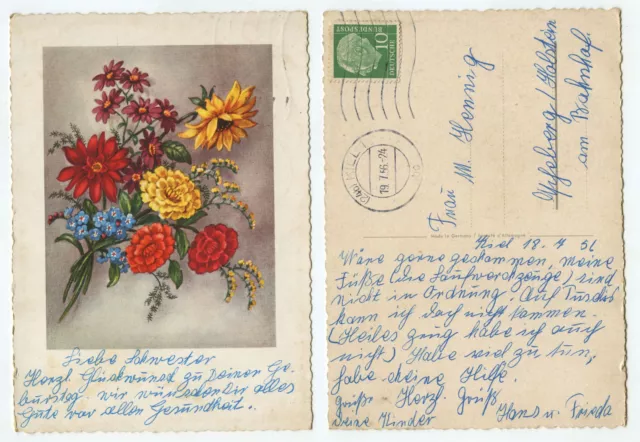 Liebe Schwester
Herzl. Glückwunsch zu Deiner Ge-
burstag. wir wünschen dir alles
Gute vor allen Gesundheit.
10
DEUTSCHE
BUNDESPOST
KIEL 1
18.7.56-24
Frau M. Hennig
/Holstein
am Bahnhof.
Made in Germany
Kiel 18.7.56
Wäre gerne gekommen, meine
Füße (die Laufwerkzeuge) sind
nicht in Ordnung. Auf
kann ich doch nicht kommen.
(Heiles zeug habe ich auch
nicht) Habe viel zu tun,
habe keine Hilfe.
Grüße Herzl. Gruß
deine Kinder Hans u. Frieda